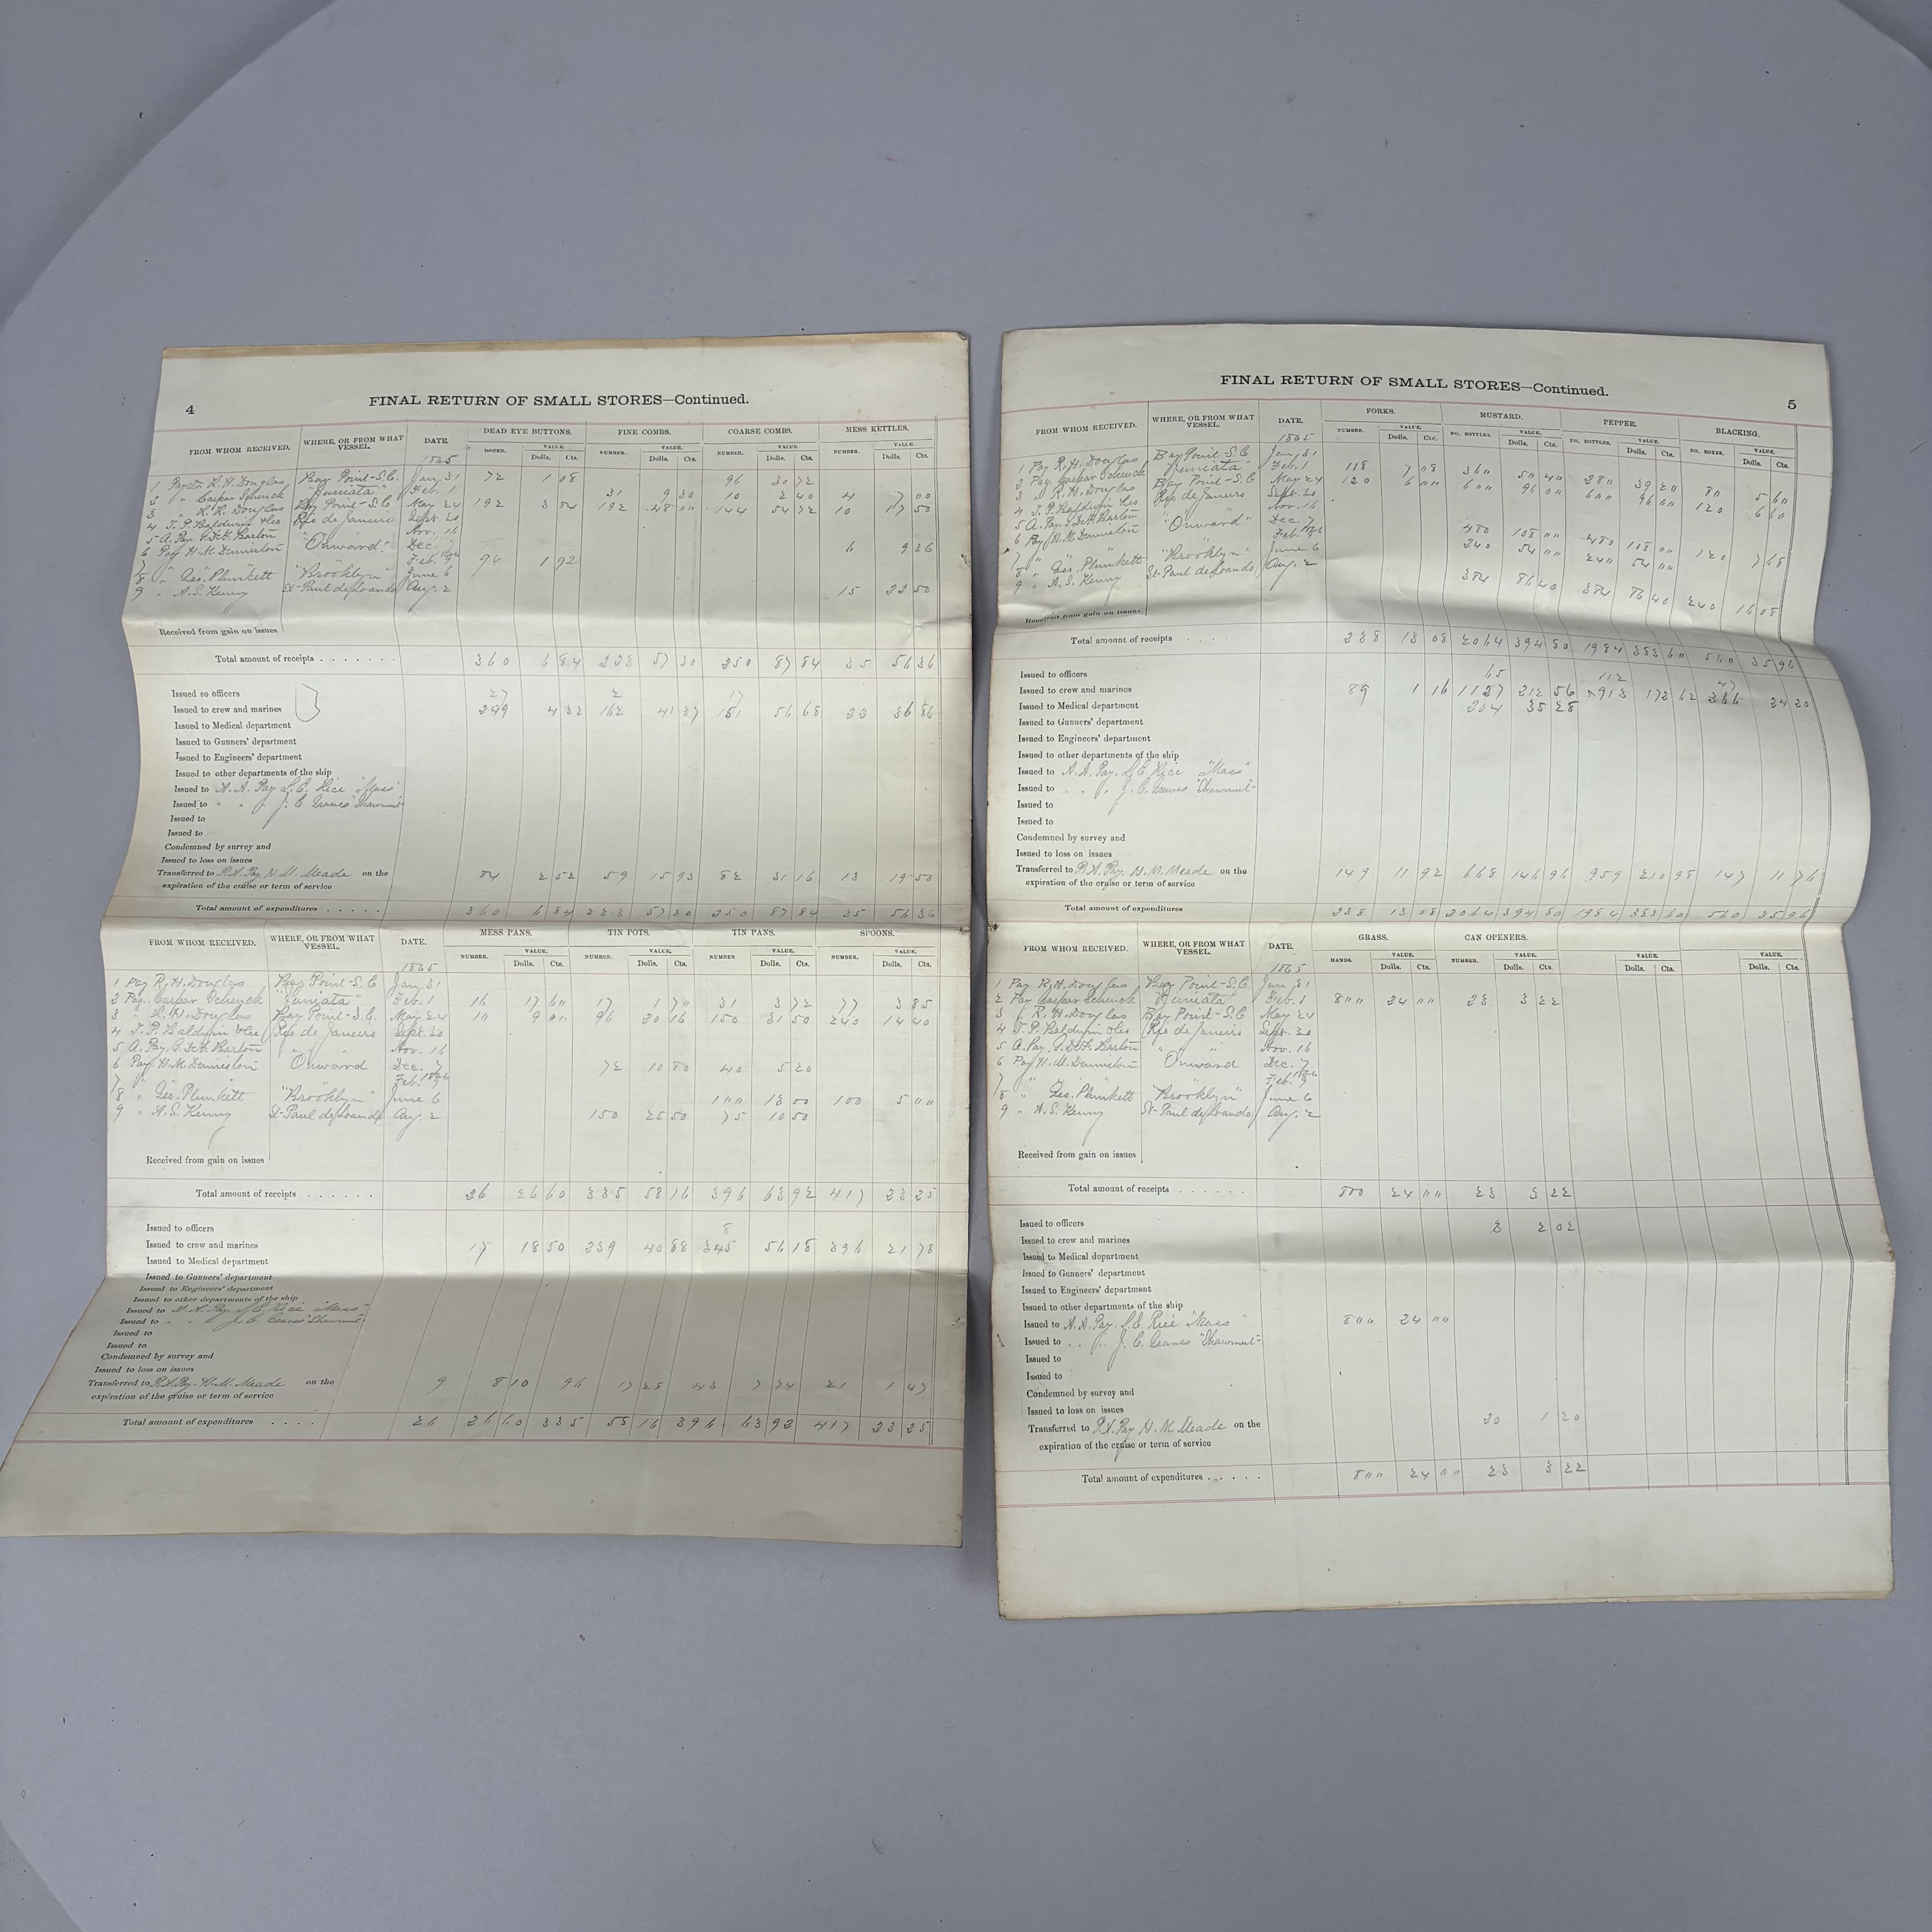 4
FINAL RETURN OF SMALL STORES—Continued.
FROM WHOM RECEIVED. WHERE, OR FROM WHAT VESSEL. DATE. DEAD EYE BUTTONS. FINE COMBS. COARSE COMBS. MESS KETTLES.
DOZEN. VALUE. Dolls. Cts. NUMBER. VALUE. Dolls. Cts. NUMBER. VALUE. Dolls. Cts. NUMBER. VALUE. Dolls. Cts.
1865
1 Paystr R. H. Douglas, Bay Point-S.C. Jan. 31 72 1 08 96 30 72
2 " Caspar Schenck "Juniata" Feb. 1 31 9 30 10 2 40 4 7 00
3 " R. H. Douglas Bay Point-S.C. May 24 192 3 84 192 48 00 144 54 72 10 17 50
4 J. P. Baldwin &Co Rio de Janeiro Sept 20
5 A. Pay. Barton Nov. 16
6 Pay H. M. Denniston "Onward" Dec. 7 6 9 36
7 " " Feb. 9 96 1 92
8 " Geo. Plunkett "Brooklyn" June 6
9 " A. S. Kenny St-Paul de Loando Aug. 2 15 22 50
Received from gain on issues
Total amount of receipts . . . . . . . 360 6 84 223 57 30 250 87 84 35 56 36
Issued so officers 27 2 17
Issued to crew and marines 249 4 32 162 41 37 151 56 68 22 36 86
Issued to Medical department
Issued to Gunners' department
Issued to Engineers' department
Issued to other departments of the ship
Issued to A. A. Pay S. E. Rice "Mass"
Issued to " " " J. C. Graves "Shawmut"
Issued to
Issued to
Condemned by survey and
Issued to loss on issues
Transferred to P. A. Pay. H. M. Meade on the 84 2 52 59 15 93 82 31 16 13 19 50
expiration of the cruise or term of service
Total amount of expenditures . . . . . 360 6 84 223 57 30 250 87 84 35 56 36
FROM WHOM RECEIVED. WHERE, OR FROM WHAT VESSEL. DATE. MESS PANS. TIN POTS. TIN PANS. SPOONS.
NUMBER. VALUE. Dolls. Cts. NUMBER. VALUE. Dolls. Cts. NUMBER VALUE. Dolls. Cts. NUMBER. VALUE. Dolls. Cts.
1865
1 Pay R. H. Douglas Bay Point-S.C Jan. 31
2 Pay. Caspar Schenck "Juniata" Feb. 1 16 17 60 17 1 70 31 3 72 77 3 85
3 " R. H. Douglas Bay Point-S.C. May 24 10 9 00 96 20 16 150 31 50 240 14 40
4 J. P. Baldwin &Co Rio de Janeiro Sept. 20
5 A. Pay. Barton Nov. 16
6 Pay H. M. Denniston "Onward Dec. 7 72 10 80 40 5 20
7 " " Feb. 1866 9
8 " Geo. Plunkett "Brooklyn" June 6 100 13 00 100 5 00
9 " A. S. Kenny St-Paul de Loando Aug. 2 150 25 50 75 10 50
Received from gain on issues
Total amount of receipts . . . . . . 26 26 60 335 58 16 396 63 92 417 23 25
Issued to officers 8
Issued to crew and marines 17 18 50 239 40 88 345 56 18 396 21 78
Issued to Medical department
Issued to Gunners' department
Issued to Engineers' department
Issued to other departments of the ship
Issued to A. A. Pay S. E. Rice "Mass"
Issued to " " " J. C. Graves "Shawmut"
Issued to
Issued to
Condemned by survey and
Issued to loss on issues
Transferred to P. A. Pay. H. M. Meade on the 9 8 10 96 17 28 43 7 74 21 1 47
expiration of the cruise or term of service
Total amount of expenditures . . . . 26 26 60 335 58 16 396 63 92 417 23 25
FINAL RETURN OF SMALL STORES—Continued.
5
FROM WHOM RECEIVED. WHERE, OR FROM WHAT VESSEL. DATE. FORKS. MUSTARD. PEPPER. BLACKING.
NUMBER. VALUE. Dolls. Cts. NO. BOTTLES. VALUE. Dolls. Cts. NO. BOTTLES. VALUE. Dolls. Cts. NO. BOXES. VALUE. Dolls. Cts.
1865
1 Pay R. H. Douglas Bay Point-S.C Jan. 31
2 Pay. Caspar Schenck "Juniata" Feb. 1 118 7 08 360 50 40 280 39 20 80 5 60
3 " R. H. Douglas Bay Point-S.C May 24 120 6 00 600 96 00 600 96 00 120 6 60
4 J. P. Baldwin &Co Rio de Janeiro Sept. 20
5 A. Pay. Barton Nov. 16
6 Pay H. M. Denniston "Onward" Dec. 7 480 108 00 480 108 00 120 7 68
7 " " Feb. 9 240 54 00 240 54 00
8 " Geo. Plunkett "Brooklyn" June 6
9 " A. S. Kenny St-Paul de Loando Aug. 2 384 86 40 384 86 40 240 16 08
Received from gain on issues
Total amount of receipts . . . . 238 13 08 2064 394 80 1984 383 60 560 35 96
Issued to officers 65 112 47
Issued to crew and marines 89 1 16 1127 212 56 913 172 62 366 24 20
Issued to Medical department 204 35 28
Issued to Gunners' department
Issued to Engineers' department
Issued to other departments of the ship
Issued to A. A. Pay. S. E. Rice "Mass"
Issued to " " " J. C. Graves "Shawmut"
Issued to
Issued to
Condemned by survey and
Issued to loss on issues
Transferred to P. A. Pay. H. M. Meade on the 149 11 92 668 146 96 959 210 98 147 11 76
expiration of the cruise or term of service
Total amount of expenditures 238 13 08 2064 394 80 1984 383 60 560 35 96
FROM WHOM RECEIVED. WHERE, OR FROM WHAT VESSEL. DATE. GRASS. CAN OPENERS.
HANDS. VALUE. Dolls. Cts. NUMBER. VALUE. Dolls. Cts. VALUE. Dolls. Cts. VALUE. Dolls. Cts.
1865
1 Pay R. H. Douglas Bay Point-S.C Jan. 31
2 Pay Caspar Schenck "Juniata" Feb. 1 800 24 00 23 3 22
3 " R. H. Douglas Bay Point-S.C May 24
4 J. P. Baldwin &Co Rio de Janeiro Sept. 20
5 A. Pay. Barton Nov. 16
6 Pay H. M. Denniston "Onward Dec. 7
7 " " Feb. 9
8 " Geo. Plunkett "Brooklyn" June 6
9 " A. S. Kenny St-Paul de Loando Aug. 2
Received from gain on issues
Total amount of receipts . . . . . . 800 24 00 23 3 22
Issued to officers 3 2 02
Issued to crew and marines
Issued to Medical department
Issued to Gunners' department
Issued to Engineers' department
Issued to other departments of the ship
Issued to A. A. Pay. S. E. Rice "Mass" 800 24 00
Issued to " " " J. C. Graves "Shawmut"
Issued to
Issued to
Condemned by survey and
Issued to loss on issues
Transferred to P. A. Pay H. M. Meade on the 20 1 20
expiration of the cruise or term of service
Total amount of expenditures . . . . . 800 24 00 23 3 22